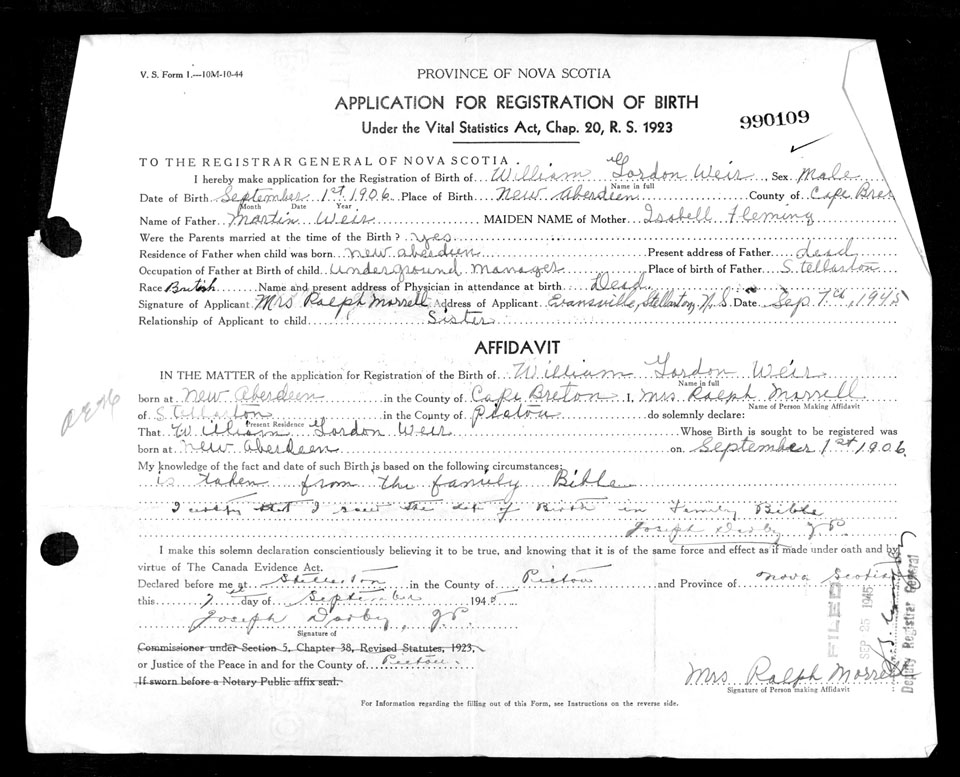 V. S. Form 1.—10M-10-44
PROVINCE OF NOVA SCOTIA
APPLICATION FOR REGISTRATION OF BIRTH
Under the Vital Statistics Act, Chap. 20, R. S. 1923
990109
TO THE REGISTRAR GENERAL OF NOVA SCOTIA.
I hereby make application for the Registration of Birth of William Gordon Weir Sex Male
Name in full
Date of Birth September 1st, 1906 Place of Birth New Aberdeen County of Cape Bre
Month Date Year
Name of Father Martin Weir MAIDEN NAME of Mother Isabell Fleming
Were the Parents married at the time of the Birth? yes
Residence of Father when child was born New Aberdeen Present address of Father dead
Occupation of Father at Birth of child Underground Manager Place of birth of Father Stellarton
Race British Name and present address of Physician in attendance at birth Dead
Signature of Applicant Mrs Ralph Morrell Address of Applicant Evansville, Stellarton, N.S. Date Sep 7th, 1945
Relationship of Applicant to child Sister
AFFIDAVIT
IN THE MATTER of the application for Registration of the Birth of William Gordon Weir
Name in full
born at New Aberdeen in the County of Cape Breton I, Mrs Ralph Morrell
Name of Person Making Affidavit
of Stellarton in the County of Pictou do solemnly declare:
Present Residence
That William Gordon Weir Whose Birth is sought to be registered was
born at New Aberdeen on September 1st 1906.
My knowledge of the fact and date of such Birth is based on the following circumstances:
is taken from the family Bible
I certify that I saw the date of Birth in Family Bible
Joseph Darby JP.
I make this solemn declaration conscientiously believing it to be true, and knowing that it is of the same force and effect as if made under oath and by
virtue of The Canada Evidence Act.
Declared before me at Stellarton in the County of Pictou and Province of Nova Scotia
this 7th day of September 1945
Joseph Darby, JP.
Signature of
Commissioner under Section 5, Chapter 38, Revised Statutes, 1923,
or Justice of the Peace in and for the County of Pictou.
If sworn before a Notary Public affix seal.
Mrs Ralph Morrell
Signature of Person making Affidavit
FILED
SEP 25 1945
Deputy Registrar General
For Information regarding the filling out of this Form, see Instructions on the reverse side.